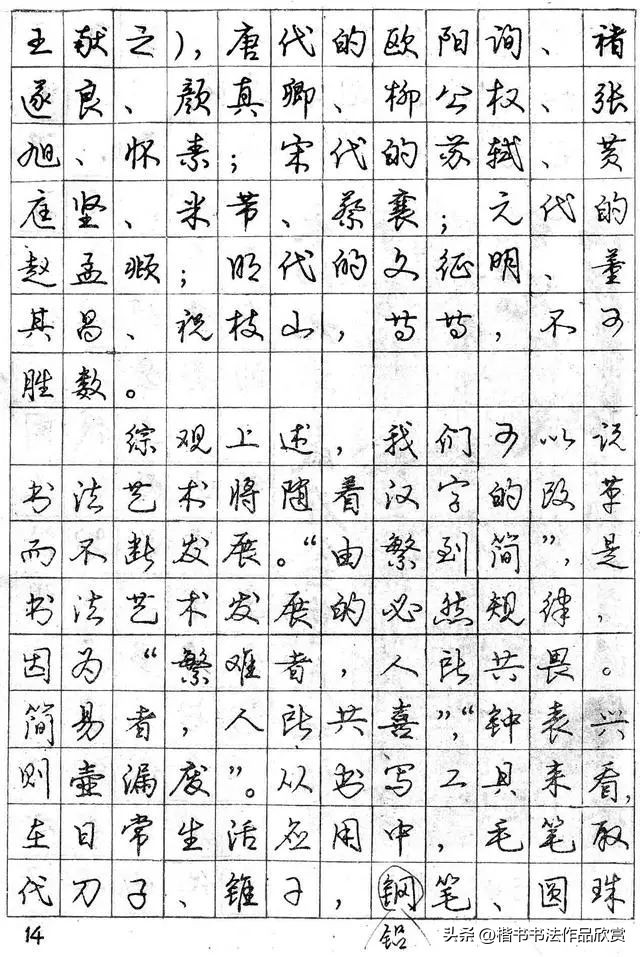 王献之），唐代的欧阳询、褚
遂良、颜真卿、柳公权、张
旭、怀素；宋代的苏轼、黄
庭坚、米芾、蔡襄；元代的
赵孟頫；明代的文征明、董
其昌、祝枝山，等等，不可
胜数。
综观上述，我们可以说
书法艺术将随着汉字的改革
而不断发展。“由繁到简”，是
书法艺术发展的必然规律，
因为“繁难者，人所共畏。
简易者，人所共喜”，“钟表兴
则壶漏废”。从书写工具来看，
在日常生活应用中，毛笔取
代刀子、锥子，钢笔、圆珠
铅
14
头条@楷书书法作品欣赏